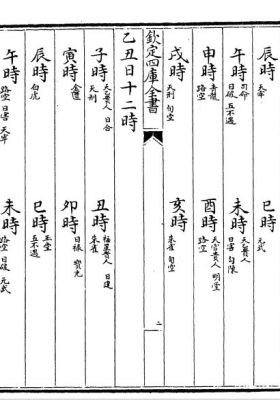 辰時 天牢
巳時 元武
午時 司命 日破 五不遇
未時 天乙貴人 日害 勾陳
申時 青龍 路空
酉時 天官貴人 明堂 路空
戌時 天刑 旬空
亥時 朱雀 旬空
欽定四庫全書
二
乙丑日十二時
子時 天乙貴人 日合 天刑
丑時 福星貴人 日建 朱雀
寅時 金匱
卯時 日祿 寶光
辰時 白虎
巳時 玉堂 五不遇
午時 路空 日害 天牢
未時 路空 日破 元武